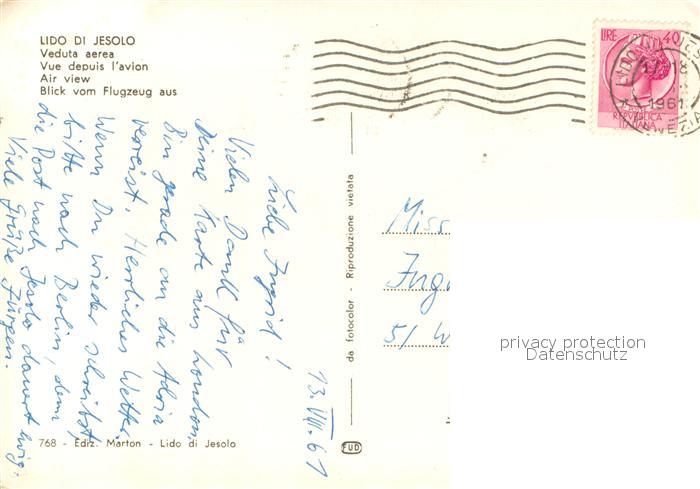 LIDO DI JESOLO
Veduta aerea
Vue depuis l'avion
Air view
Blick vom Flugzeug aus
LIRE 40
REPUBBLICA
ITALIANA
18
1961
Liebe Ingrid!
Vielen Dank für
Deine Karte aus London.
Bin gerade an die Adria
verreist. Herrliches Wetter.
Wenn Du wieder schreibst,
bitte nach Berlin, denn
die Post nach Jesolo dauert ewig.
Viele Grüße Jürgen.
13.VIII.61
da fotocolor - Riproduzione vietata
FUD
Miss
Ing
5/ W
privacy protection
Datenschutz
768 - Ediz. Marton - Lido di Jesolo